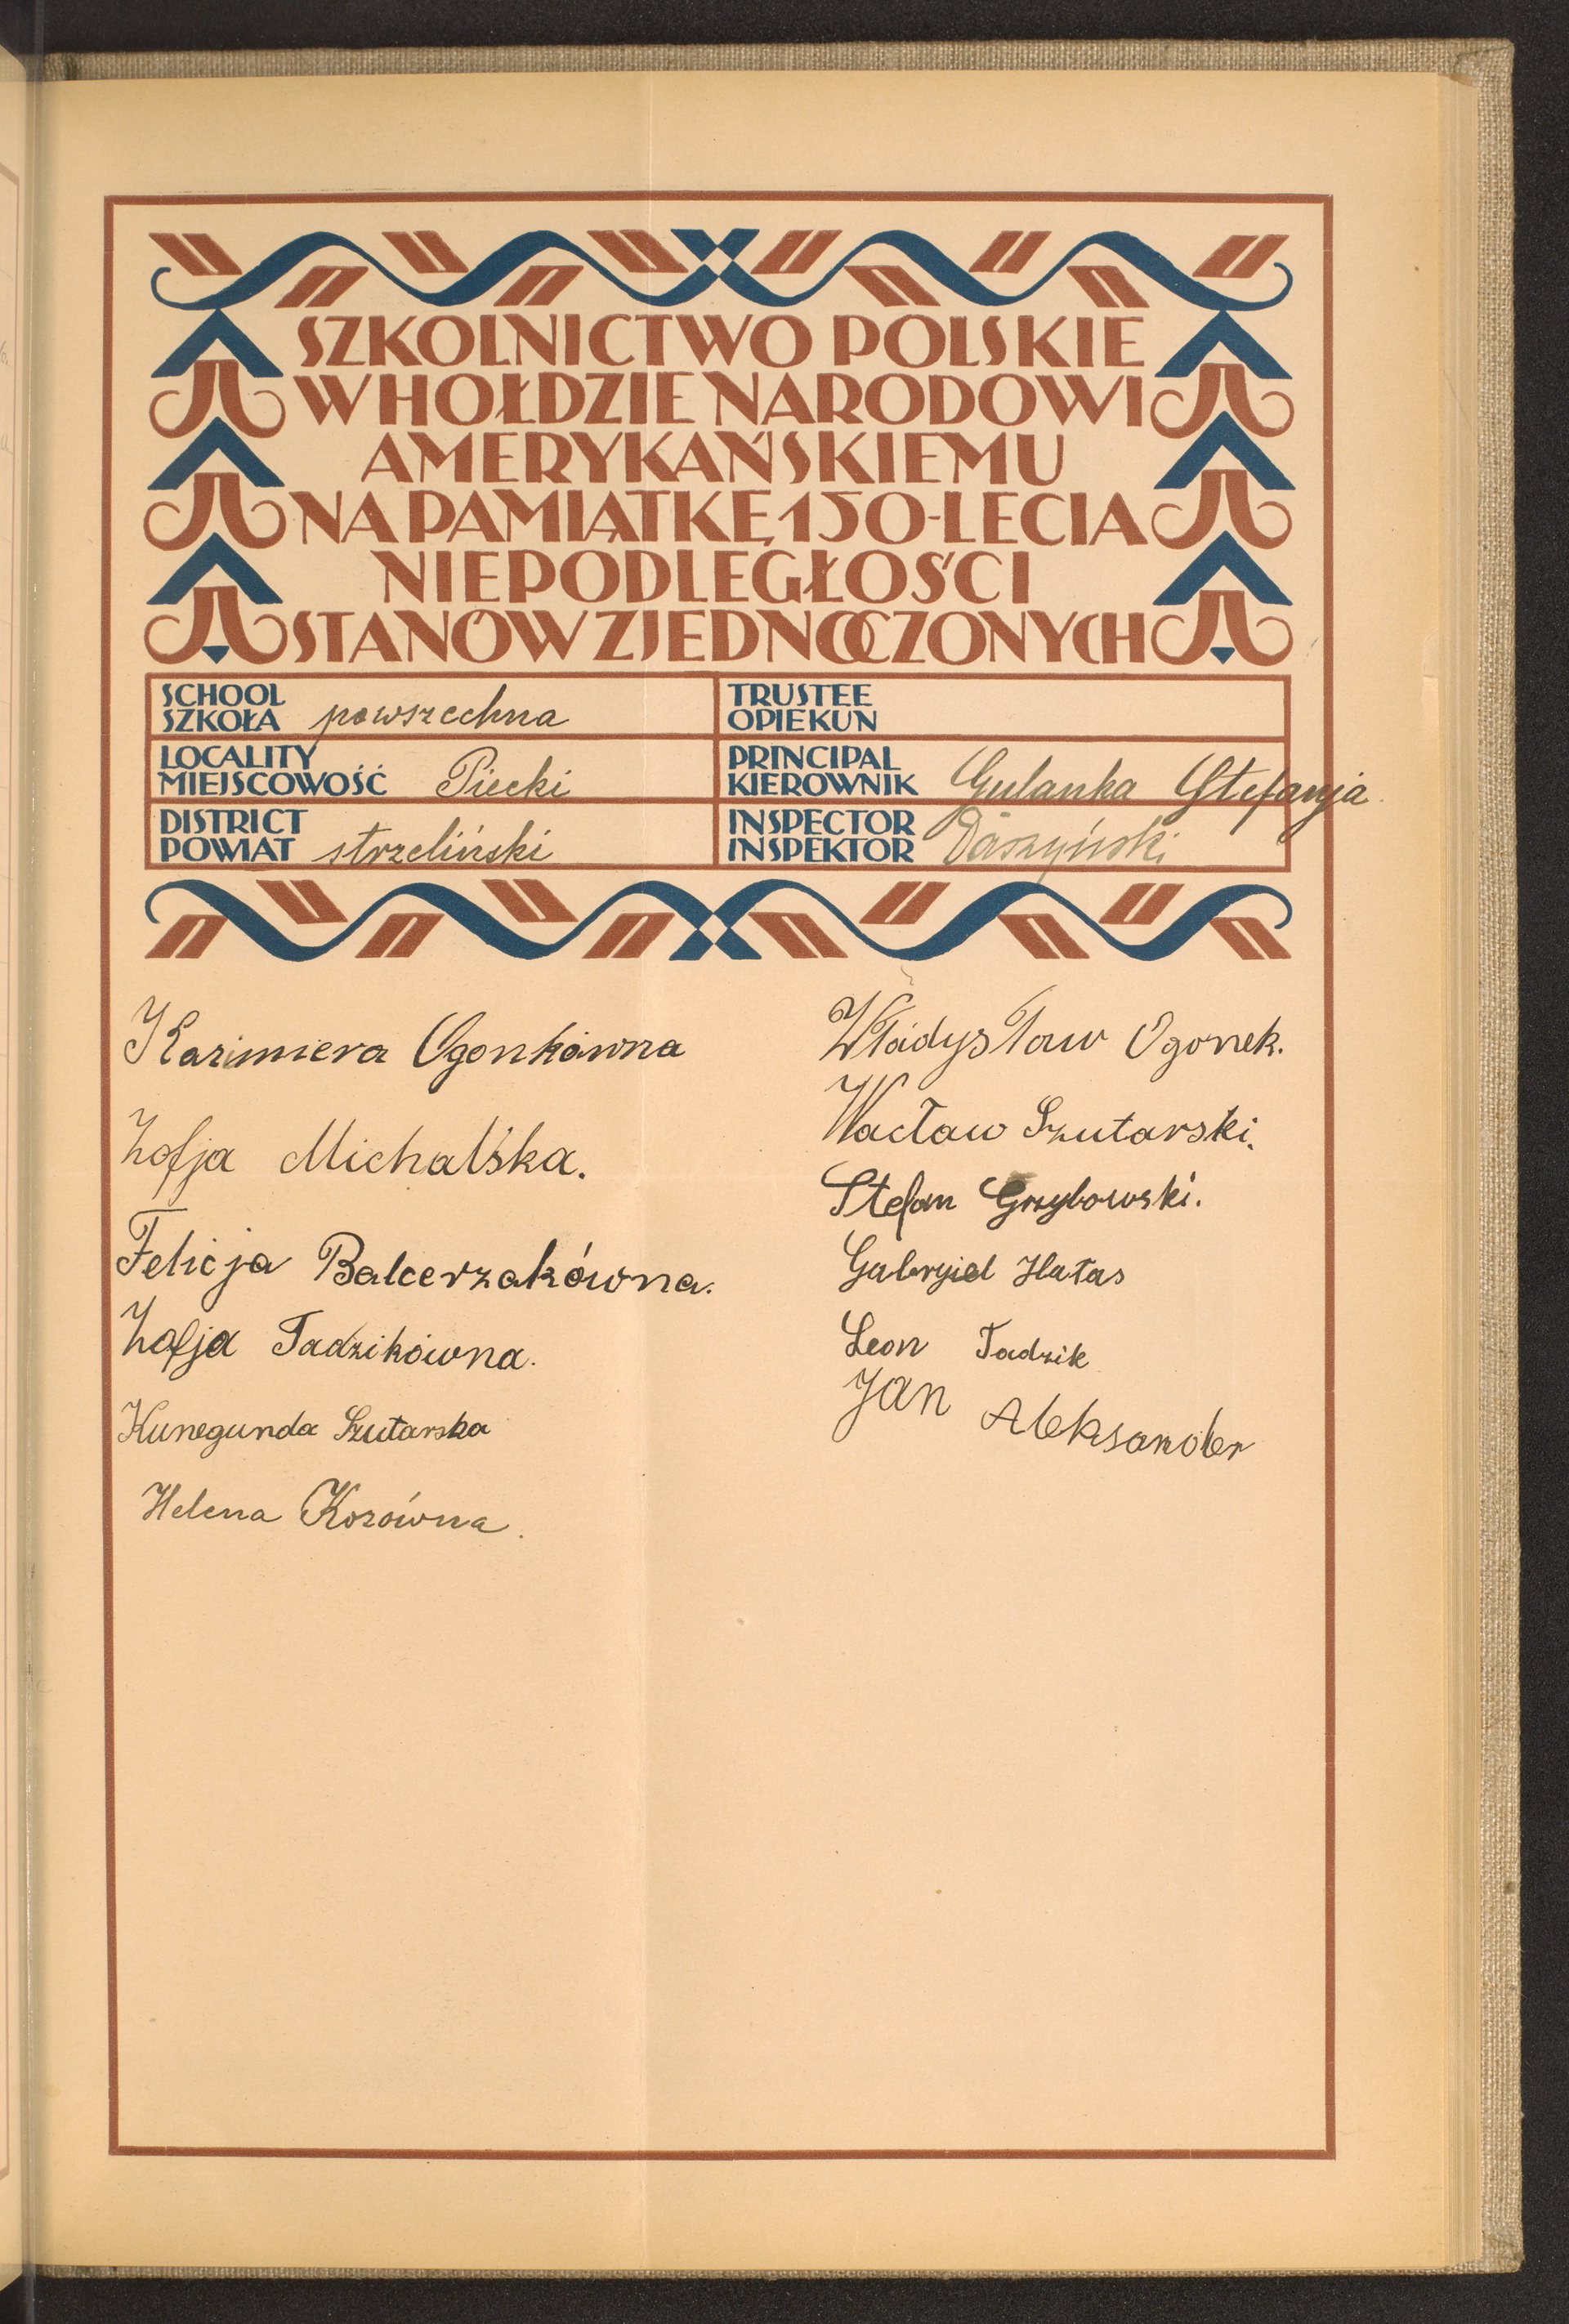 SZKOLNICTWO POLSKIE
W HOŁDZIE NARODOWI
AMERYKAŃSKIEMU
NA PAMIĄTKĘ 150-LECIA
NIEPODLEGŁOŚCI
STANÓW ZJEDNOCZONYCH
SCHOOL
SZKOŁA powszechna
TRUSTEE
OPIEKUN
LOCALITY
MIEJSCOWOŚĆ Piecki
PRINCIPAL
KIEROWNIK Gulanka Stefanja
DISTRICT
POWIAT strzeliński
INSPECTOR
INSPEKTOR Daszyński
Kazimiera Ogonkówna
Zofja Michalśka.
Felicja Balcerzakówna.
Zofja Tadzikówna.
Kunegunda Szutarska
Helena Kozówna.
Władysław Ogonek.
Wacław Szutarski.
Stefan Grzybowski.
Gabryjel Hałas
Leon Tadzik
Jan Aleksander